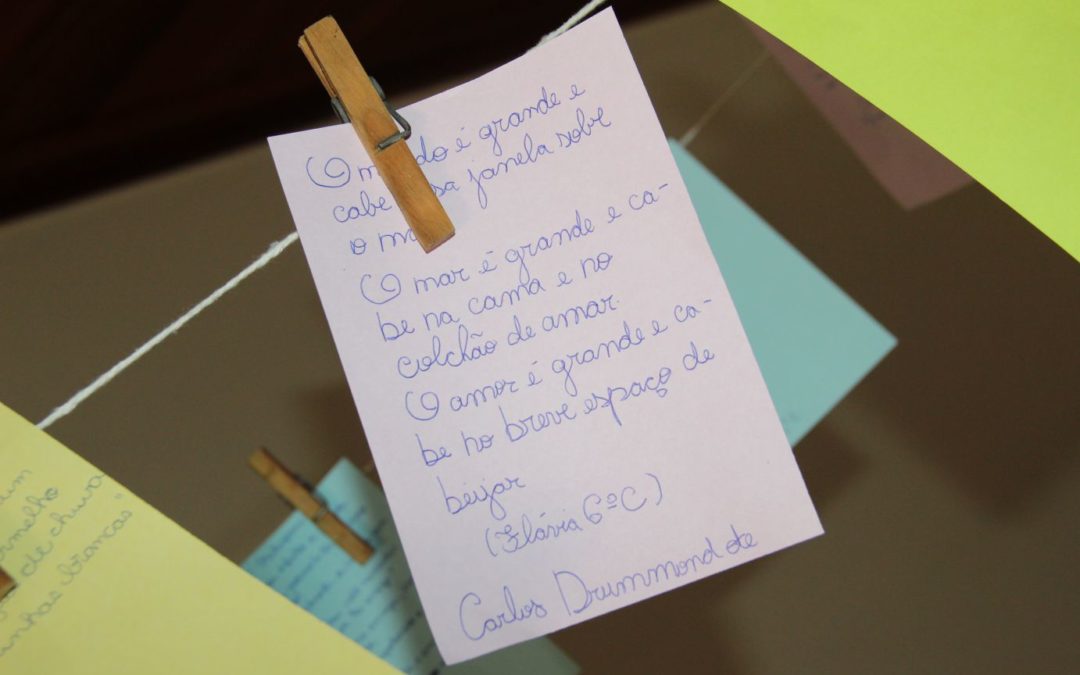 O é grande e
cabe janela sobre
o
O mar é grande e ca-
be na cama e no
colchão de amar.
O amor é grande e ca-
be no breve espaço de
beijar
(Flávia 6º C)
Carlos Drummond de
de chuva
brancas"